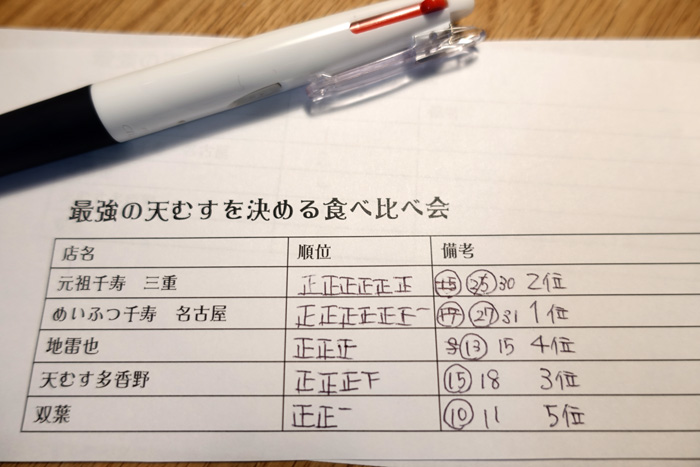 最強の天むすを決める食べ比べ会
店名 順位 備考
元祖千寿 三重 正正正正正正 15 25 30 2位
めいふつ千寿 名古屋 正正正正正正一 17 27 31 1位
地雷也 正正正 8 13 15 4位
天むす多香野 正正正下 15 18 3位
双葉 正正一 10 11 5位